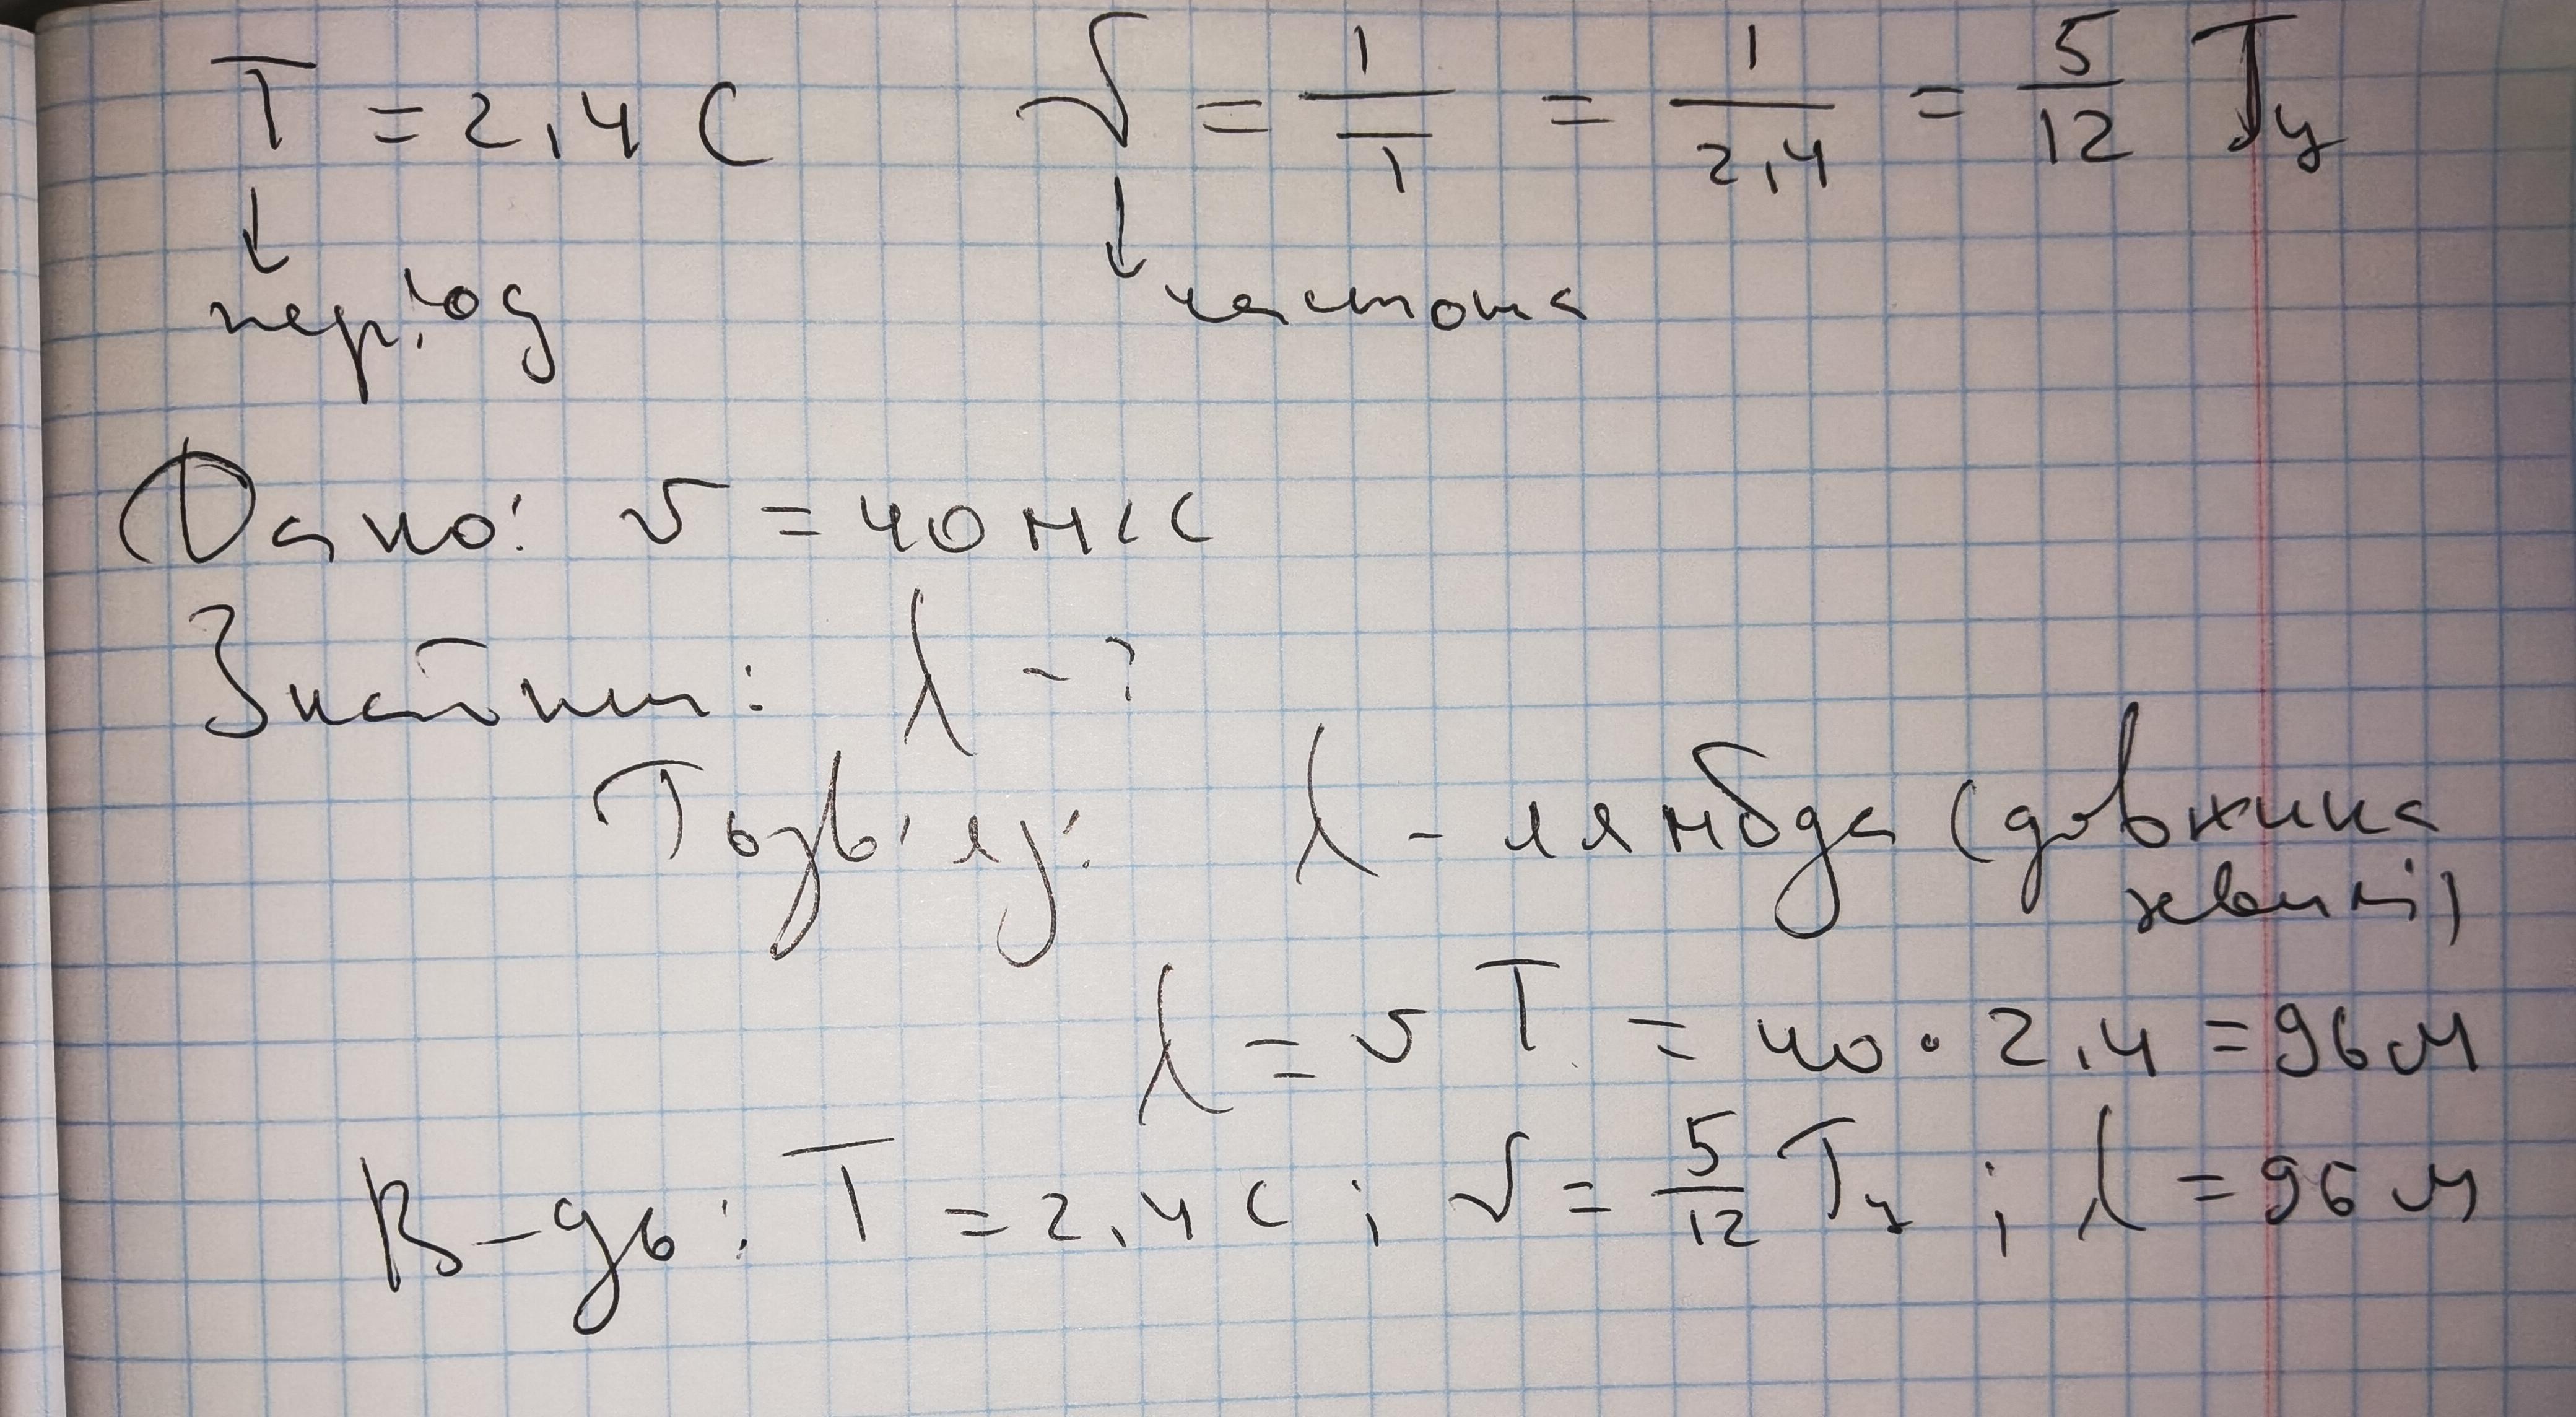 T = 2,4 с    ν = 1/T = 1/2,4 = 5/12 Гц
↓ ↓
період    частота
Дано: v = 40 м/с
Знайти: λ - ?
Розв'яз: λ - лямбда (довжина
хвилі)
λ = v T = 40 · 2,4 = 96 м
В-дь: T = 2,4 с ; ν = 5/12 Гц ; λ = 96 м